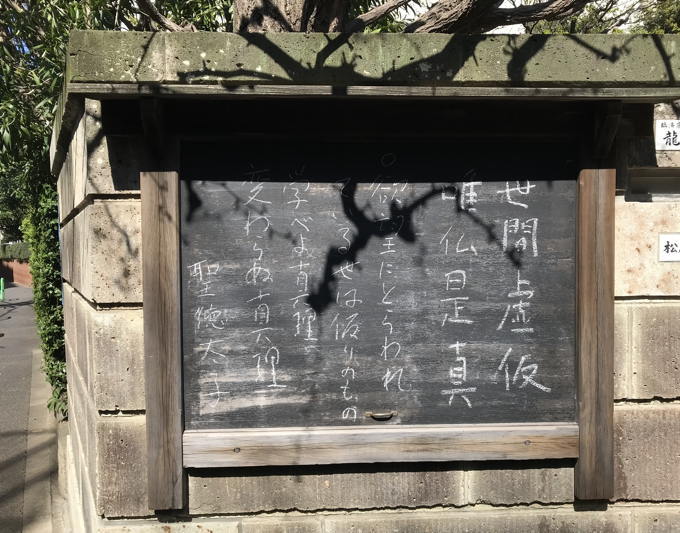 世間虚仮
唯仏是真
○欲望にとらわれ
ている世は仮りのもの
学べよ真理
変わらぬ真理
聖徳太子
龍
松